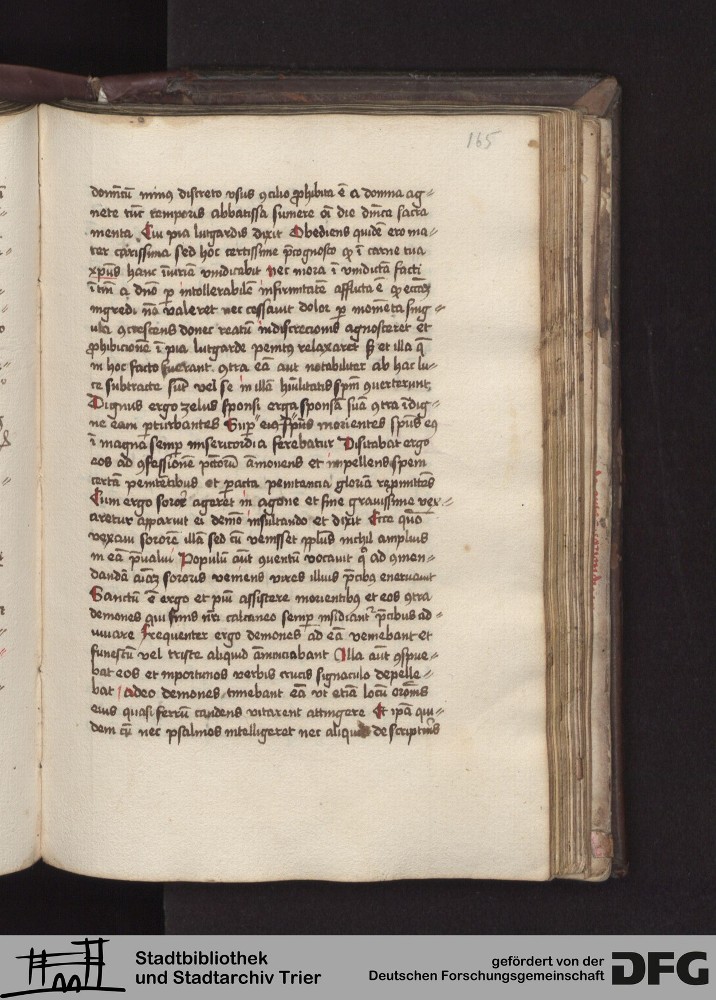 165
domicū minus discreto vsus ꝯcilio ꝓhibita ē a domna ag⸗
nete tūc temporis abbatissa sumere oī die dnīca sacra
menta Cui pia lutgardis dixit Obediens quidē ero ma⸗
ter carissima sed hoc certissime p̄cognosco ꝙ ī carne tua
xpūs hanc īiuriā vindicabit nec mora ī vindictā facti
īt̄m a dn̄o ꝑ intollerabilē infirmitatē afflicta ē ꝙ ecc̄iaꝫ
ingredi nō valeret nec cessauit dolor ꝑ momēta sing⸗
ula ꝯcrescens donec reatū indiscrecionis agnosceret et
ꝓhibicionē ī pia lutgarde penitꝰ relaxaret Sꝫ et illa q̄
in hoc facto fuerant ꝯtra eā aut notabiliter ab hac lu⸗
ce subtracte sūt vel se in illā hūilitatis sp̄m ꝯuerterunt
Dignus ergo zelus sponsi erga sponsā suā ꝯtra īdig⸗
ne eam ꝑturbantes Suꝑ eiꝰ sp̄ūs morientes spūs eiꝰ
ī magna semꝑ misericordia ferebatur Visitabat ergo
eos ad ꝯfessionē pctōrū āmonens et impellens spem
certā penitētibus et pacta penitencia gloriā repmittēs
Cum ergo soror ageret in agone et fine grauissime vex⸗
aretur apparuit ei demō insultando et dixit Ecce quō
vexaui sororē illā sed cū venisset xp̄lus nichil amplius
in eā p̄ualui Populū aūt ꝯuentū vocauit qͥ ad ꝯmen⸗
dandā aīaꝫ sororis veniens vires illius p̄cibꝰ eneruauit
Sanctū ē ergo et piū assistere morientibꝰ et eos ꝯtra
demones qui finis nr̄i calcaneo semꝑ insidiantᷣ p̄cibus ad⸗
iuuare Frequenter ergo demones ad eā veniebant et
funestū vel triste aliquid ānunciabant Illa aūt ꝯspue⸗
bat eos et inportunos verbis crucis signaculo depelle⸗
bat Adeo demones timebant eā vt etiā locū orōnis
eius quasi ferrū candens vitarent attingere Et ipā qui⸗
dem cū nec psalmos intelligeret nec aliquid de scripturis
Stadtbibliothek
und Stadtarchiv Trier
gefördert von der
Deutschen Forschungsgemeinschaft
DFG